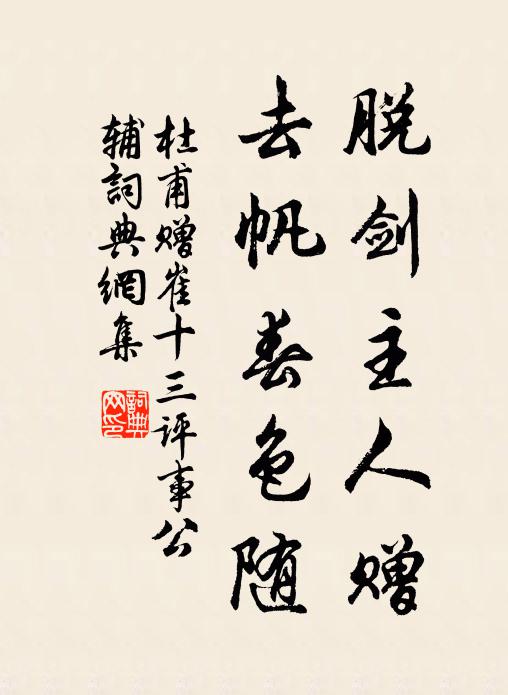 脱剑主人赠
去帆春色随
杜甫赠崔十三评事公
辅詞典網集
詞典网印